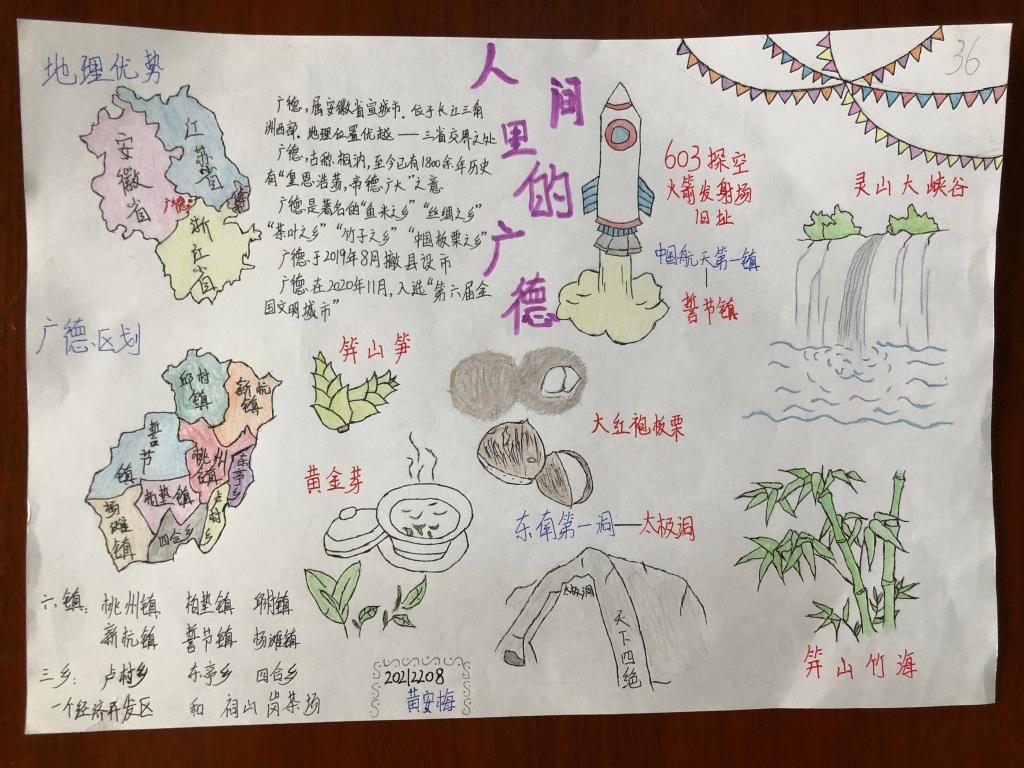 36
地理优势
人间里的广德
安徽省
江苏省
浙江省
广德
广德，属安徽省宣城市。位于长江三角
洲西部。地理位置优越——三省交界之处
广德，古称桐汭，至今已有1800余年历史
有“皇恩浩荡，帝德广大”之意
广德是著名的“鱼米之乡”“丝绸之乡”
“茶叶之乡”“竹子之乡”“中国板栗之乡”
广德于2019年8月撤县设市
广德在2020年11月，入选“第六届全
国文明城市”
603探空
火箭发射场
旧址
中国航天第一镇
誓节镇
灵山大峡谷
广德区划
邱村镇
新杭镇
誓节镇
桃州镇
东亭乡
柏垫镇
卢村乡
杨滩镇
四合乡
笄山笋
大红袍板栗
黄金芽
东南第一洞——太极洞
太极洞
天下四绝
笄山竹海
六镇：桃州镇 柏垫镇 邱村镇
新杭镇 誓节镇 杨滩镇
三乡：卢村乡 东亭乡 四合乡
一个经济开发区 和 祠山岗茶场
20212208
黄安梅